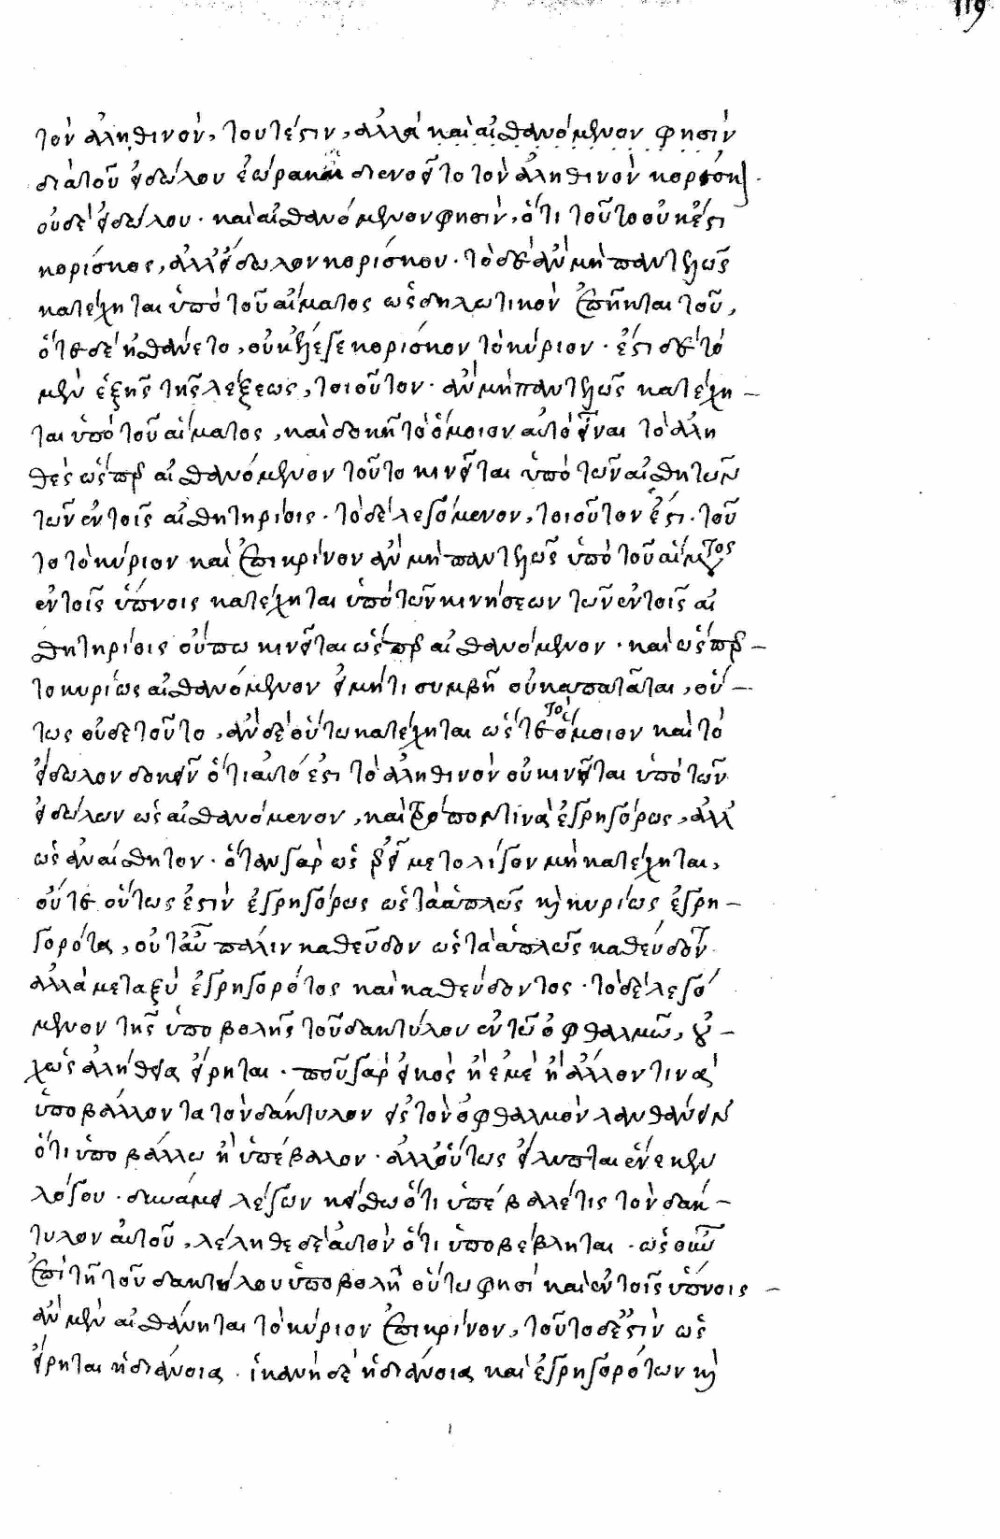 119
τὸν ἀληθινόν, τουτέστιν, ἀλλὰ καὶ αἰσθανόμενον φησὶν
διὰ τοῦ εἰδώλου ἑώρακα διενοεῖτο τὸν ἀληθινὸν κορίσκον.
οὐδὲ εἰδώλου. καὶ αἰσθανόμενον φησὶν, ὅτι τοῦτο οὐκ ἔστι
κορίσκος, ἀλλ' εἴδωλον κορίσκου. τὸ δὲ ἂν μὴ παντελῶς
κατέχηται ὑπὸ τοῦ αἵματος ὡς δηλωτικὸν ἐπῆκται τοῦ,
ὅτε δὲ ᾐσθάνετο, οὐκ ἔλεγε κορίσκον τὸ κύριον. ἔστι δὲ τὸ
μὲν ἑξῆς τῆς λέξεως, τοιοῦτον. ἂν μὴ παντελῶς κατέχη-
ται ὑπὸ τοῦ αἵματος, καὶ δοκῇ τὸ ὅμοιον αὐτὸ εἶναι τὸ ἀλη
θὲς ὥσπερ αἰσθανόμενον τοῦτο κινεῖται ὑπὸ τῶν αἰσθητῶν
τῶν ἐν τοῖς αἰσθητηρίοις. τὸ δὲ λεγόμενον, τοιοῦτον ἐστι. τοῦ
το τὸ κύριον καὶ ἐπικρίνον ἂν μὴ παντελῶς ὑπὸ τοῦ αἵματος
ἐν τοῖς ὕπνοις κατέχηται ὑπὸ τῶν κινήσεων τῶν ἐν τοῖς αἰ
σθητηρίοις οὕτω κινεῖται ὥσπερ αἰσθανόμενον. καὶ ὥσπερ-
τὸ κυρίως αἰσθανόμενον εἰ μή τι συμβῇ οὐκ ἀπατᾶται, οὕ-
τως οὐδὲ τοῦτο, ἂν δὲ οὕτω κατέχηται ὥστε τὸ ὅμοιον καὶ τὸ
εἴδωλον δοκεῖν ὅτι αὐτό ἐστι τὸ ἀληθινὸν οὐ κινεῖται ὑπὸ τῶν
εἰδώλων ὡς αἰσθανόμενον, καὶ τρόπον τινὰ ἐγρηγόρως, ἀλλ'
ὡς ἀναίσθητον. ὅταν γὰρ ὡς μετ' ὀλίγον μὴ κατέχηται,
οὔτε οὕτως ἐστὶν ἐγρηγόρως ὡς τὰ ἁπλῶς καὶ κυρίως ἐγρη-
γορότα, οὔτ' αὖ πάλιν καθεῦδον ὡς τὰ ἁπλῶς καθεύδοντα
ἀλλὰ μεταξὺ ἐγρηγορότος καὶ καθεύδοντος. τὸ δὲ λεγό
μενον τῆς ὑποβολῆς τοῦ δακτύλου ἐν τῷ ὀφθαλμῷ, οὐ-
χ ὡς ἀλήθεια εἴρηται. ποῦ γὰρ εἰκὸς ἢ ἐμὲ ἢ ἄλλον τινὰ
ὑποβάλλοντα τὸν δάκτυλον εἰς τὸν ὀφθαλμὸν λανθάνειν
ὅτι ὑποβάλλω ἢ ὑπέβαλον. ἀλλ' οὕτως εἴληπται ἕνεκεν
λόγου. δυνάμει λέγων κείσθω ὅτι ὑπέβαλέ τις τὸν δάκ-
τυλον αὐτοῦ, λέληθε δὲ αὐτὸν ὅτι ὑποβέβληται. ὡς οὖν
ἐπὶ τῇ τοῦ δακτύλου ὑποβολῇ οὕτω φησὶ καὶ ἐν τοῖς ὕπνοις-
ἂν μὲν αἰσθάνηται τὸ κύριον ἐπικρίνον, τοῦτο δέ ἐστιν ὡς
εἴρηται ἡ διάνοια. ἱκανὴ δὲ ἡ διάνοια καὶ ἐγρηγορότων καὶ